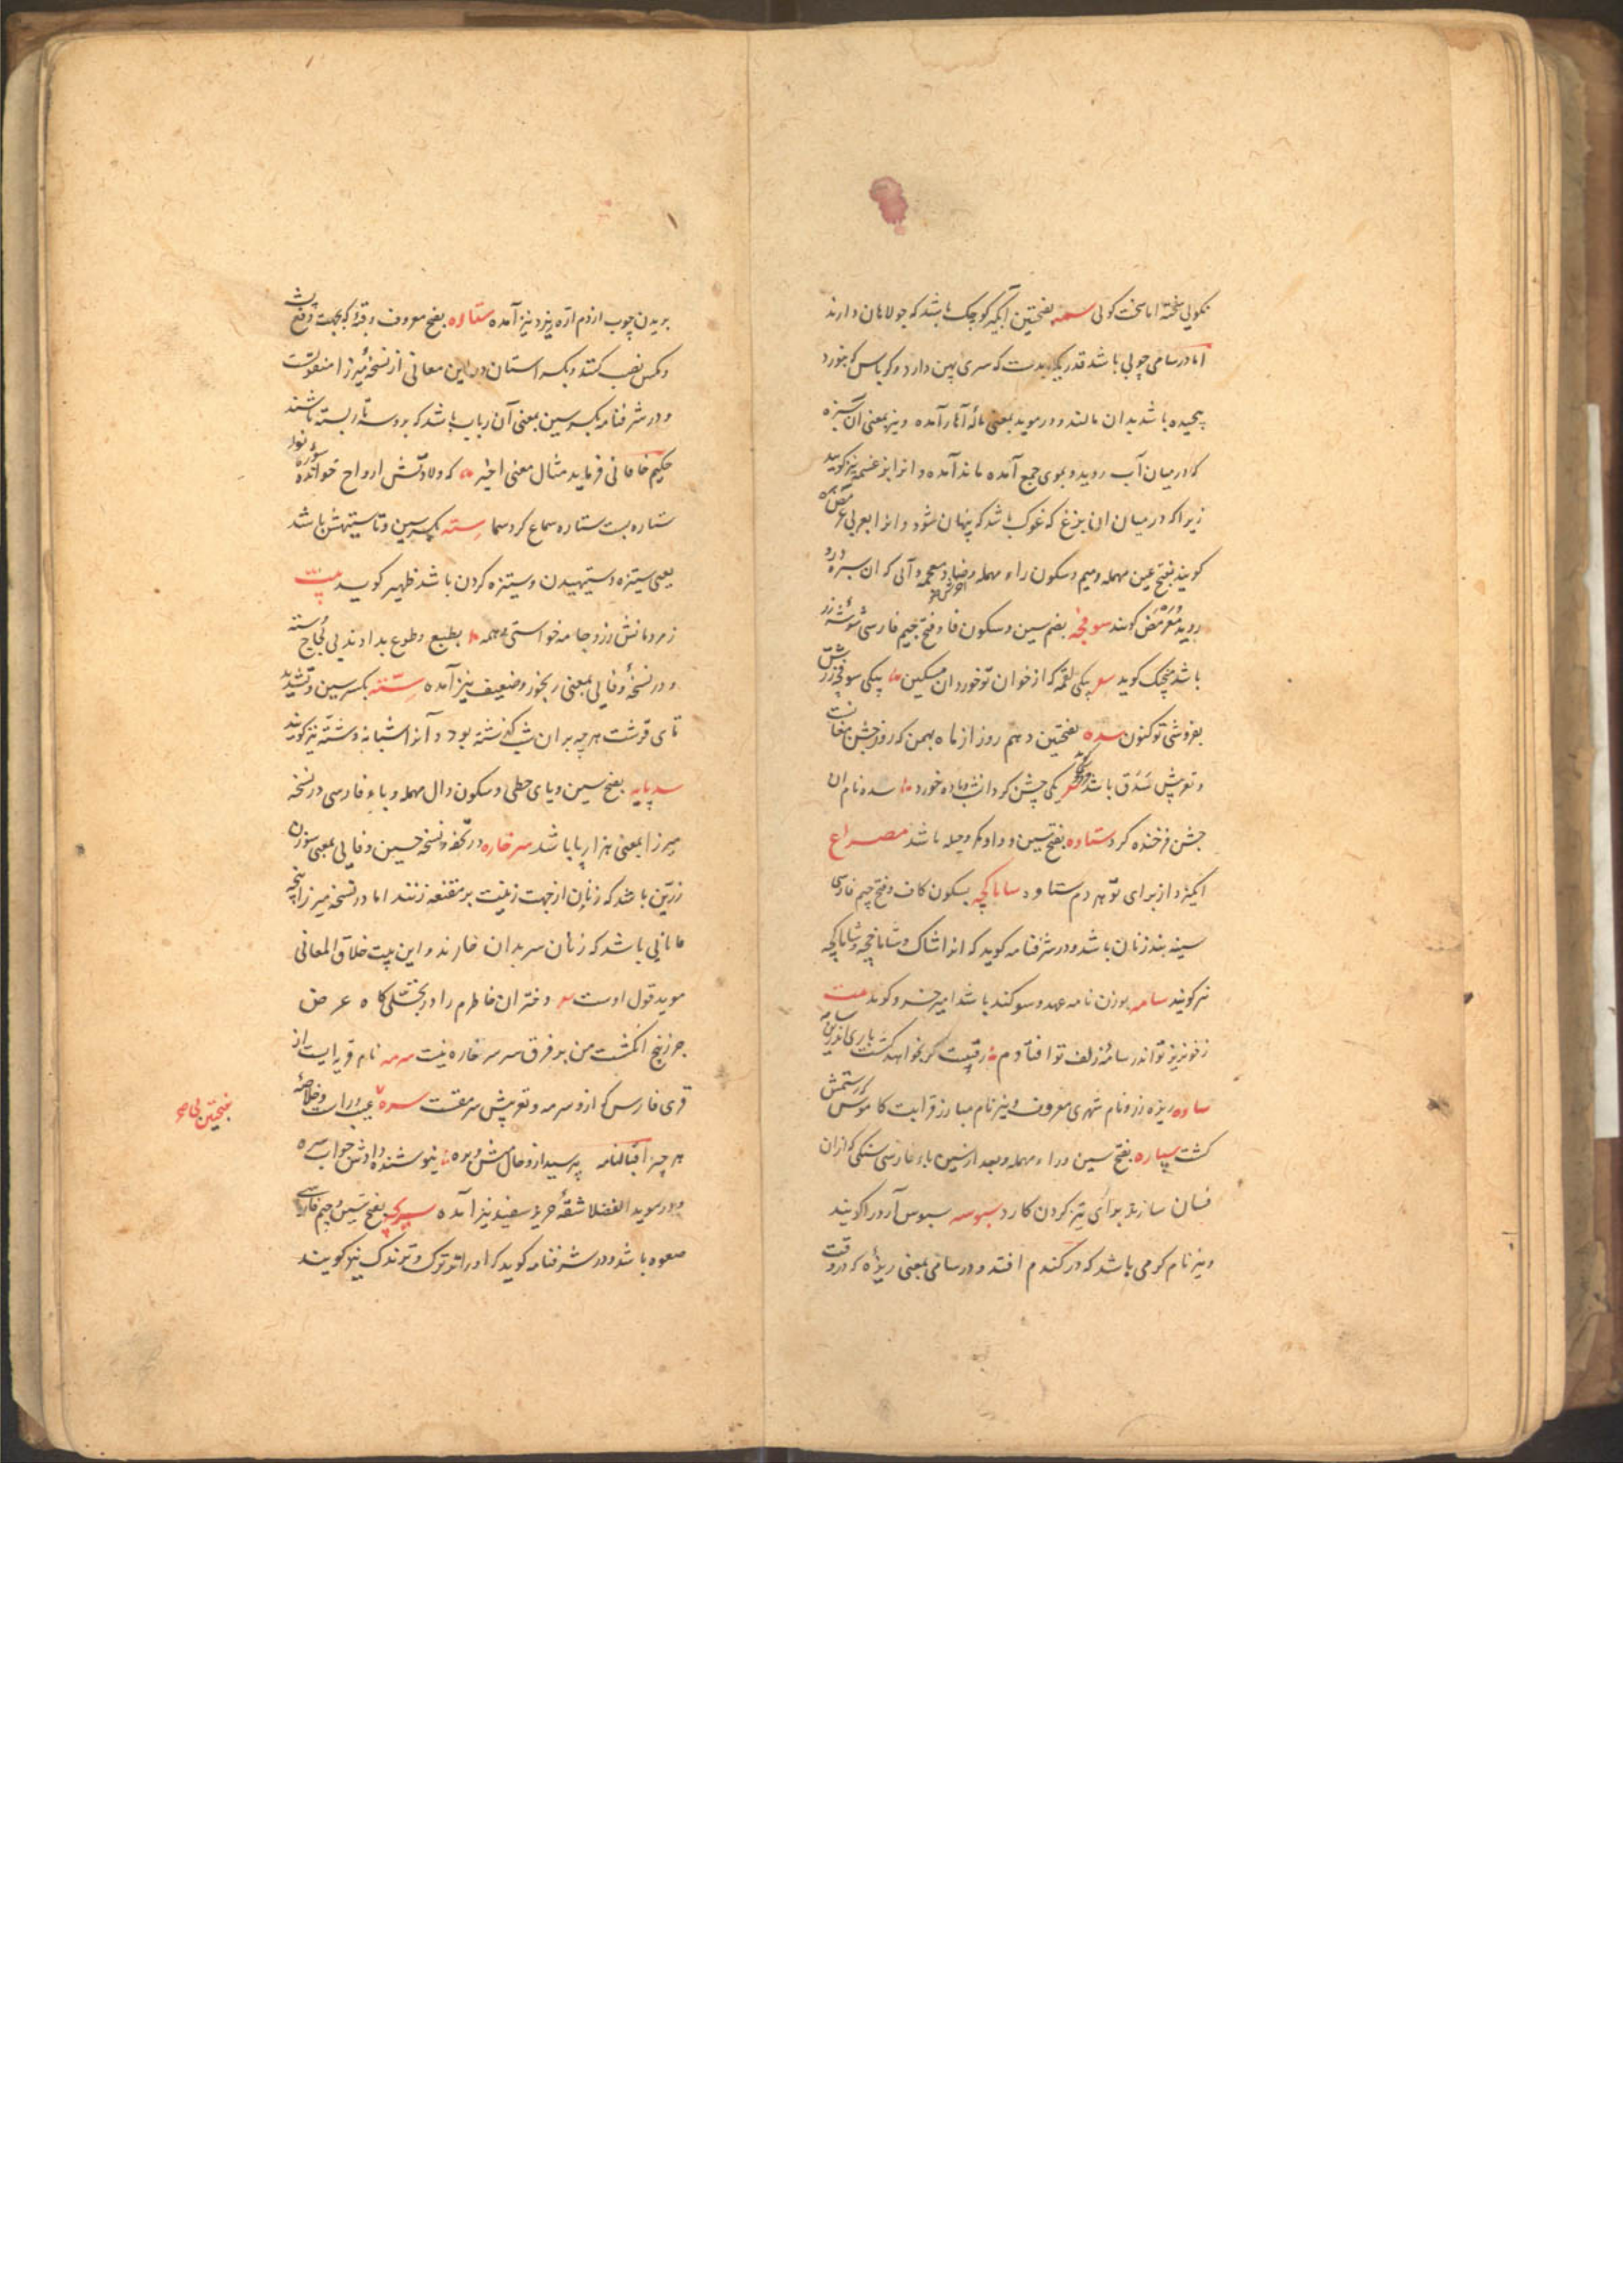 نکویی سخته اما سخت کولی سمه بفتحتین آبگیر کوچک باشد که جولاهان دارند
اما در سامی چوبی باشد قدر یکبدست که سری پهن دارد و کرباس که بنورد
پیچیده باشد بدان مالند و در موید بمعنی ماله آهار آمده و نیز بمعنی آن سبزه
که در میان آب روید و بموی جمع آمده ماند آمده و انرا بزغسمه نیز کویند
زیرا که در میان ان بزغ که غوک باشد که پنهان شود و انرا بعربی
کویند بفتح عین مهمله و میم و سکون راء مهمله و ضاد معجمه و آبی که ان سبزه درو
روید کویند سوفچه بضم سین و سکون فا و فتح جیم فارسی شوشه زر
باشد منجیک کوید یکی لقمه که از خوان تو خورد ان مسکین یکی سوفچه زرش
بفروشی تو کنون سده بفتحتین دهم روز از ماه بهمن که روز جشن مغانست
و تعریبش سذق باشد یکی جشن کرد انشب و باده خورد سده نام ان
جشن فرخنده کرد ستاوه بفتح سین و واو مکر و حیله باشد مصراع
انکیزد از برای تو هر دم ستاوه ساباکچه بسکون کاف و فتح جیم فارسی
سینه بند زنان باشد و در شرفنامه کوید که انرا شاک و شاماخچه و شاماکچه
نیز کویند سامه بوزن نامه عهد و سوکند باشد امیر خسرو کوید بیت
ز خونریز تو اندر سامه زلف تو افتادم رقیبت کر بخواهد کشت باری اندرین سامه
ساوه ریزه زر و نام شهری معروف و نیز نام مبارز قرابت کاموس که رستمش
کشت سپاره بفتح سین و راء مهمله و بعد از سین باء فارسی سنکی که از ان
فسان سازند برای تیز کردن کارد سبوسه سبوس آرد را کویند
و نیز نام کرمی باشد که در کندم افتد و در سامی بمعنی ریزه که در وقت
بریدن چوب از دم اره ریزد نیز آمده ستاره بفتح معروف و قبه که بجهت دفع پشه
و مکس نصب کنند و بکسر استان در این معانی از نسخه میرزا منقولست
و در شرفنامه بکسر سین بمعنی آن رباب باشد که برو سه تار بسته باشند
حکیم خاقانی فرماید مثال معنی اخیر که ولادتش ارواح خوانده سوره نور
ستاره بست ستاره سماع کرد سما سته بکسر سین و تا ستیهش باشد
یعنی ستیزه و ستیهیدن و ستیزه کردن باشد ظهیر کوید بیت
زمردمانش زر و جامه خواستی و همه بطبع و طوع بدادند بی لجاج و سته
و در نسخه وفایی بمعنی رنجور و ضعیف نیز آمده ستنه بکسر سین و تشدید
تای قرشت هر چه بر ان شب گذشته بود و آنرا شبانه و شته نیز کویند
سدپایه بفتح سین و یای حطی و سکون دال مهمله و باء فارسی در نسخه
میرزا بمعنی هزارپا باشد سرخاره در تحفه و نسخه حسین وفایی بمعنی سوزن
زرین باشد که زنان از جهت زینت بر مقنعه زنند اما در نسخه میرزا پنجه
مانایی باشد که زنان سر بدان خارند و این بیت خلاق المعانی
موید قول اوست دختران خاطرم را در تجلی کاه عرض
جز ز پنج انکشت من بر فرق سر سرخاره نیست سرمه نام قریه ایست از
قری فارس که ازو سرمه و تعریبش سرمقست سره بی عیب و راست و خلاصه
هر چیز اقبالنامه بپرسید ازو حال مش و بره نیوشنده دادش جواب سره
و در موید الفضلا شقه حریر سفید نیز آمده سریچه بفتح سین و جیم فارسی
صعوه باشد و در شرفنامه کوید که او را ترترک و ترندک نیز کویند
بفتحتین بی